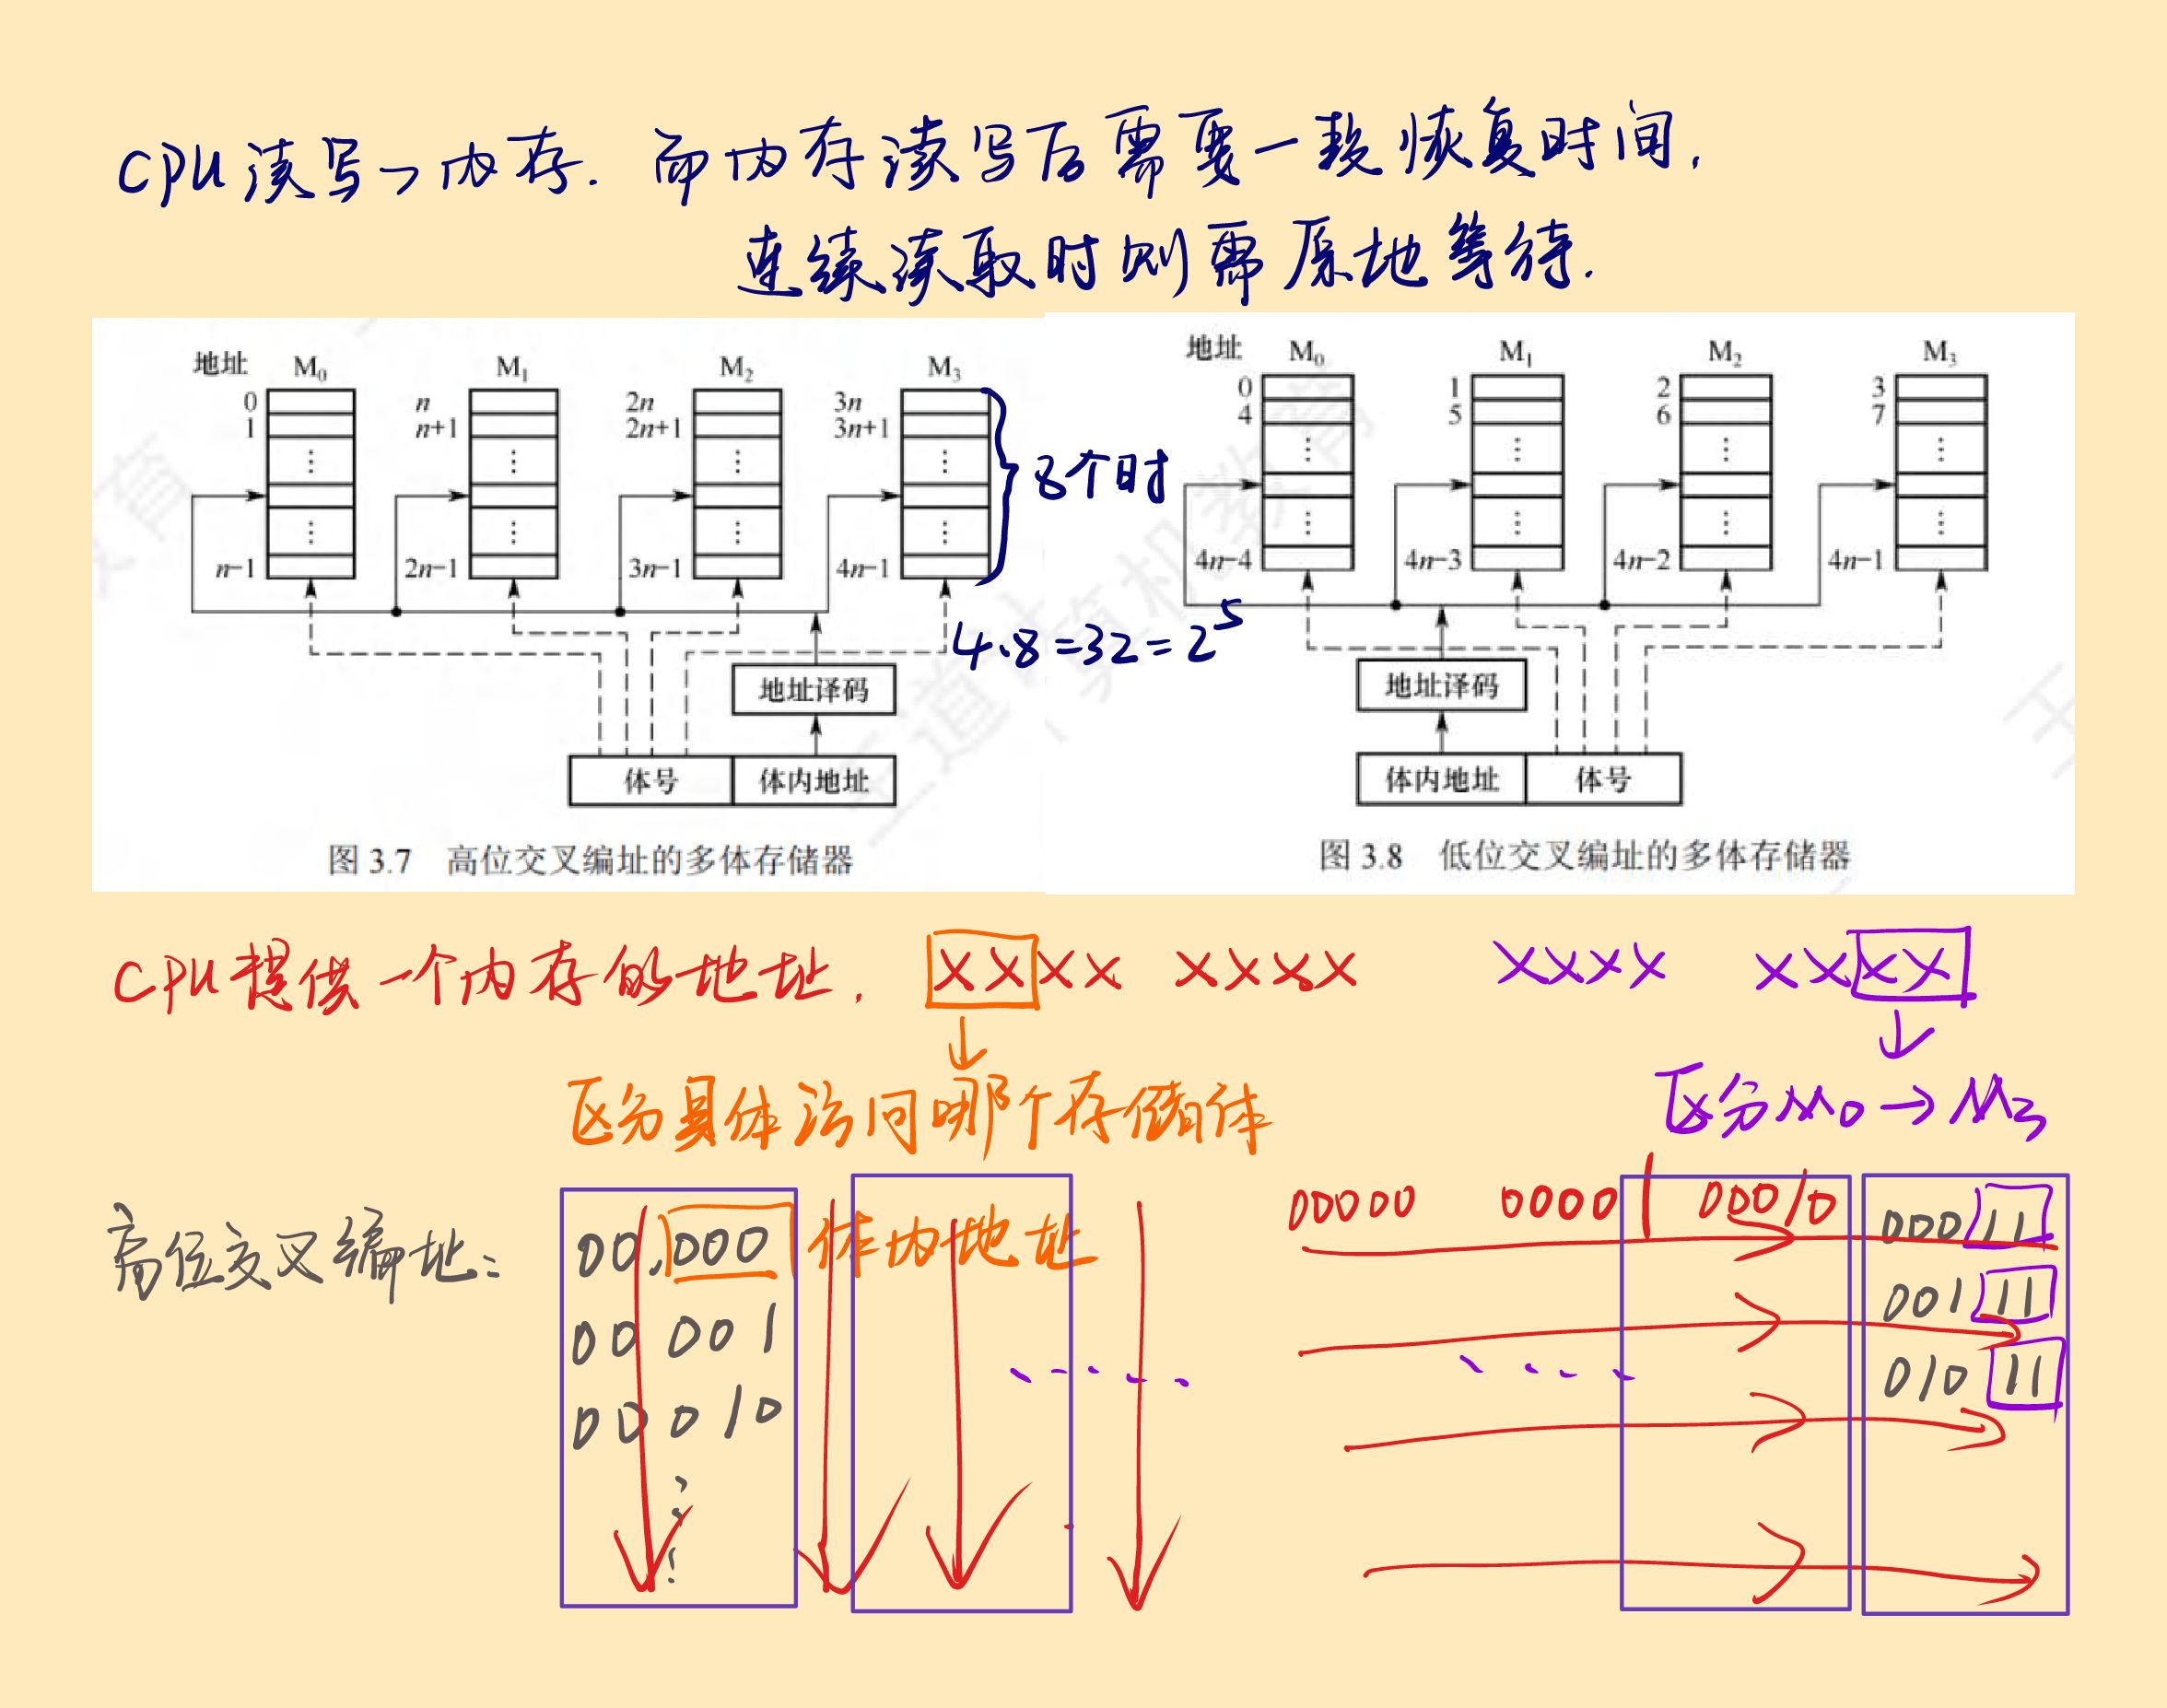 CPU读写→内存. 而内存读写后需要一段恢复时间,
连续读取时则需原地等待.
地址 M0 M1 M2 M3
0 n 2n 3n
1 n+1 2n+1 3n+1
⋮ ⋮ ⋮ ⋮
8个时
⋮ ⋮ ⋮ ⋮
n−1 2n−1 3n−1 4n−1
4·8=32=2^5
地址译码
体号 体内地址
图 3.7 高位交叉编址的多体存储器
地址 M0 M1 M2 M3
0 1 2 3
4 5 6 7
⋮ ⋮ ⋮ ⋮
⋮ ⋮ ⋮ ⋮
4n−4 4n−3 4n−2 4n−1
地址译码
体内地址 体号
图 3.8 低位交叉编址的多体存储器
CPU提供一个内存的地址. XXXX XXXX XXXX XXXX
区分具体访问哪个存储体
区分M0→M3
高位交叉编址: 00,000 体内地址
00 001
00 010
00000 00001 00010 00011
00111
01011
王道计算机教育